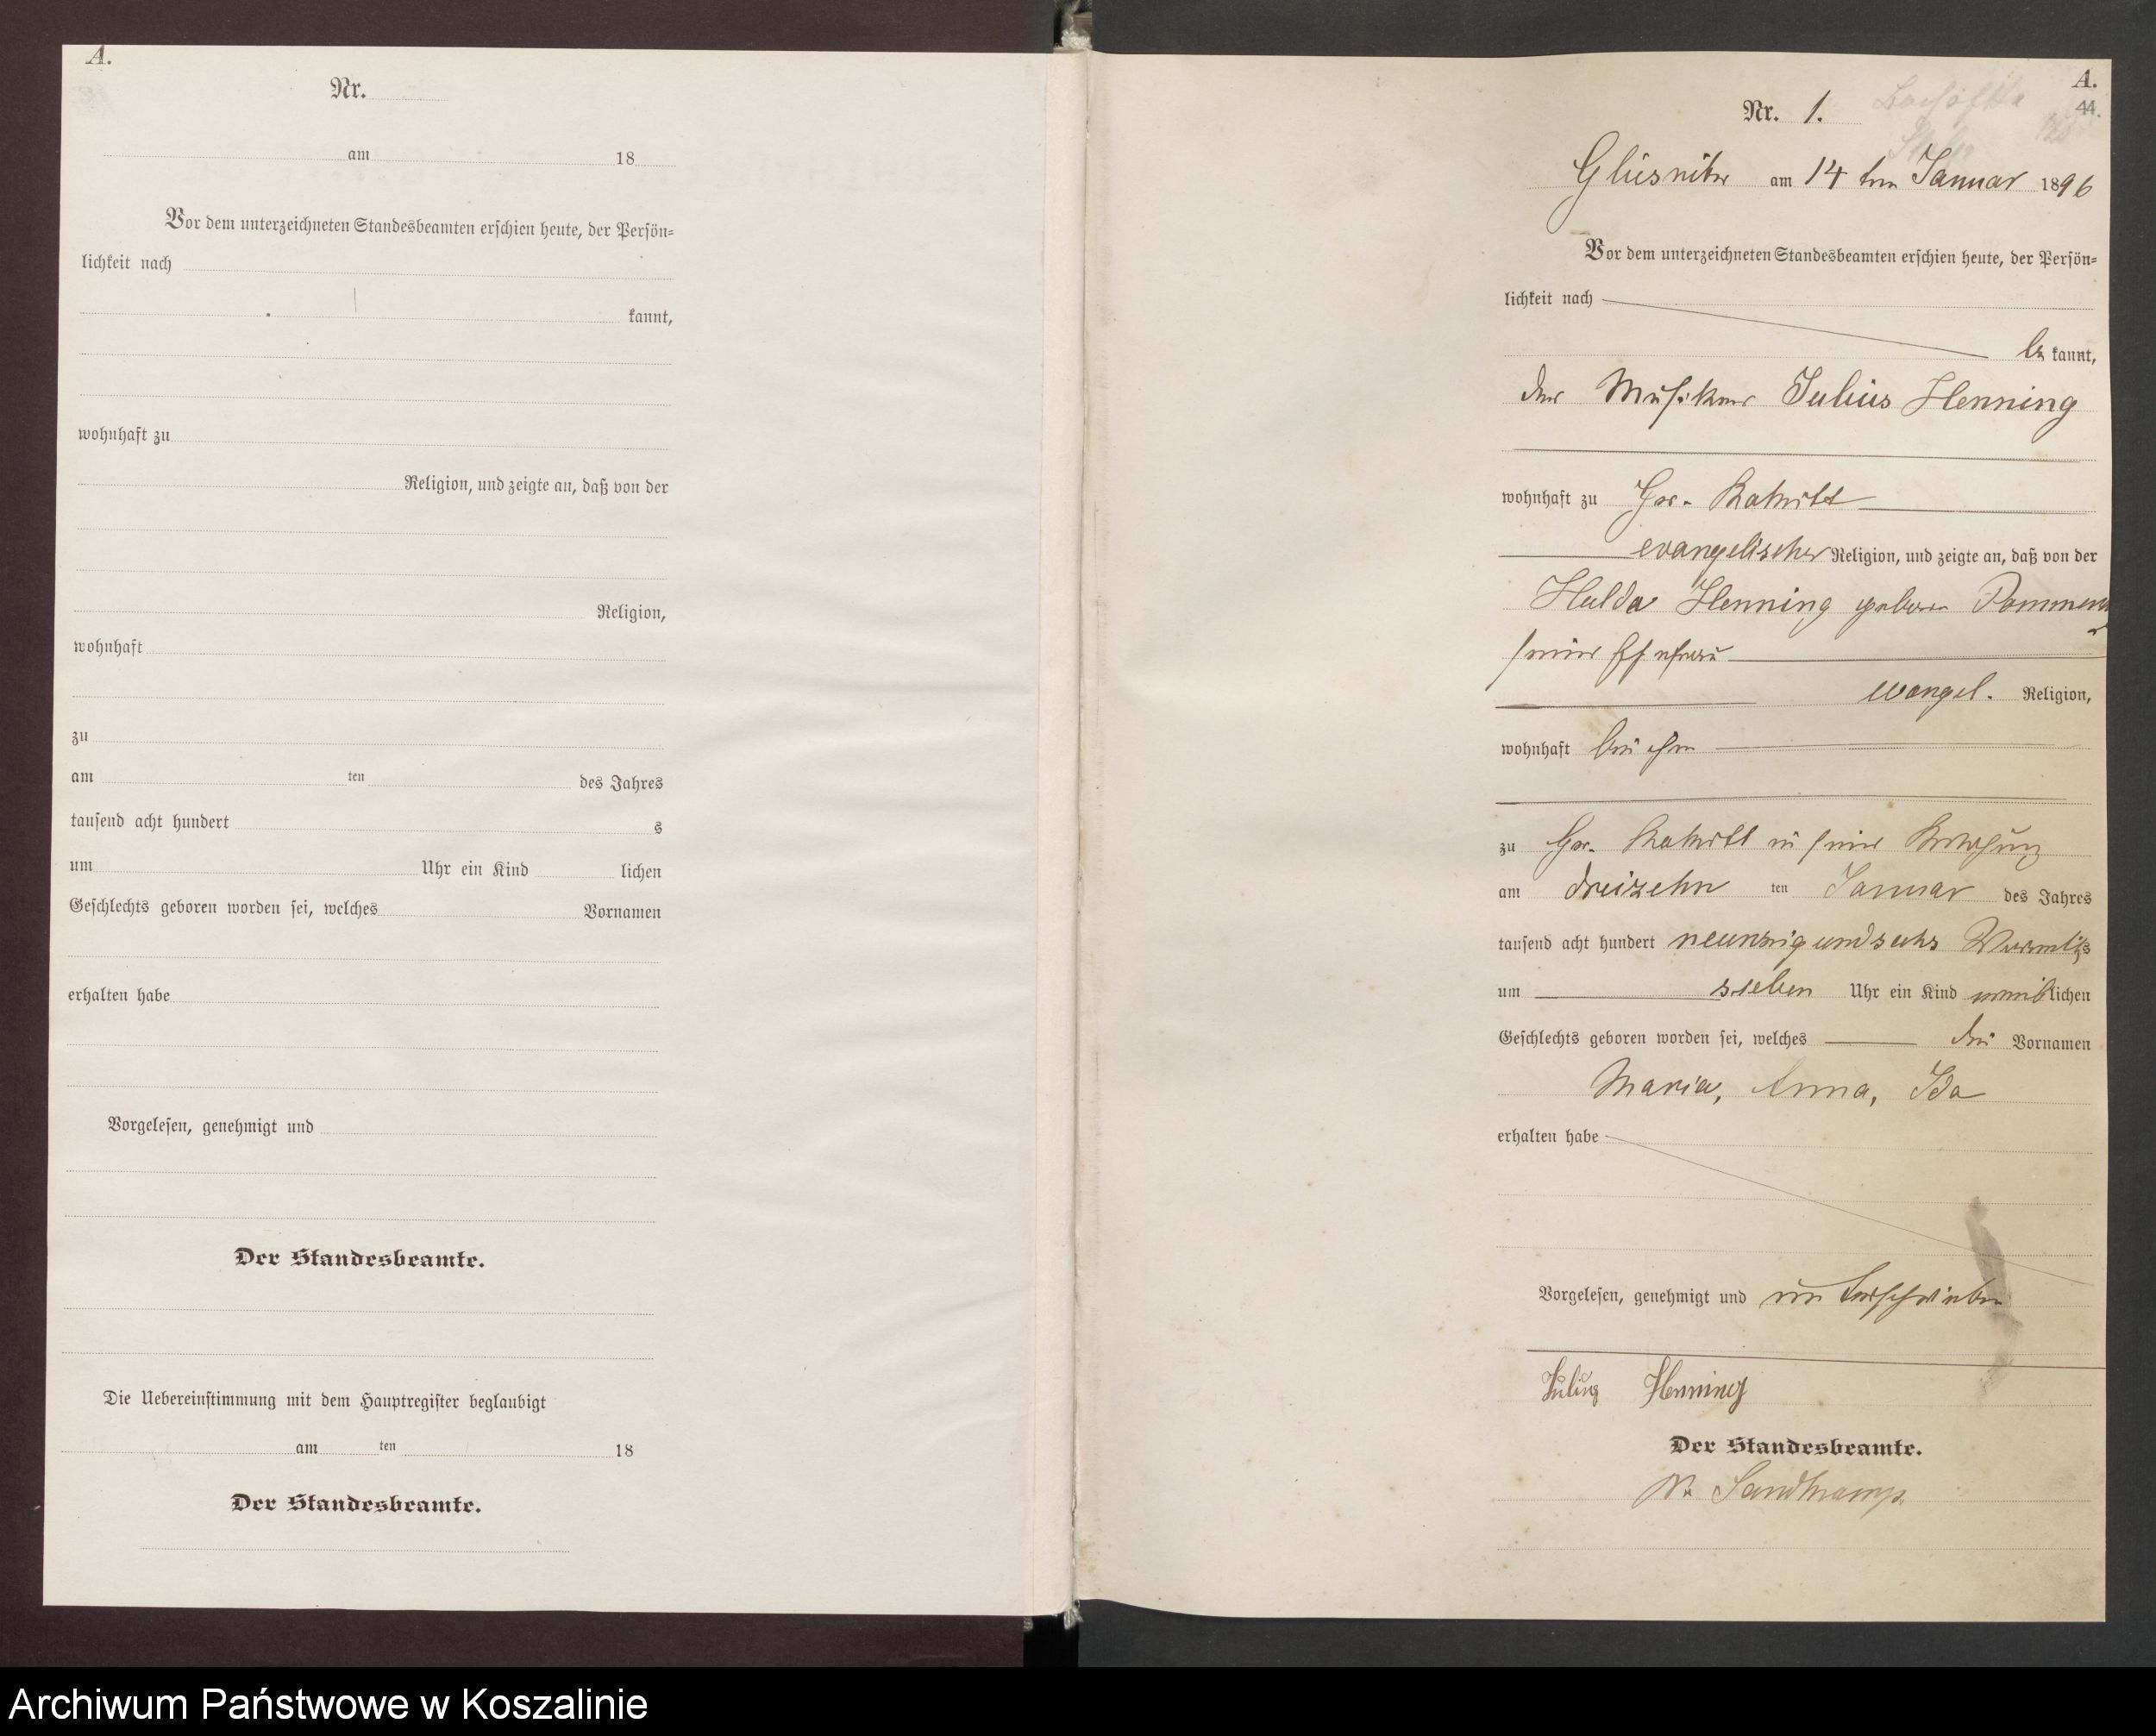 A.
Nr.
am 18
Vor dem unterzeichneten Standesbeamten erschien heute, der Persön=
lichkeit nach
kannt,
wohnhaft zu
Religion, und zeigte an, daß von der
Religion,
wohnhaft
zu
am ten des Jahres
tausend acht hundert s
um Uhr ein Kind lichen
Geschlechts geboren worden sei, welches Vornamen
erhalten habe
Vorgelesen, genehmigt und
Der Standesbeamte.
Die Uebereinstimmung mit dem Hauptregister beglaubigt
am ten 18
Der Standesbeamte.
A.
44.
Nr. 1.
am 14 ten Januar 1896
Vor dem unterzeichneten Standesbeamten erschien heute, der Persön=
lichkeit nach
be kannt,
der Musiker Julius Henning
wohnhaft zu Gr.
evangelischer Religion, und zeigte an, daß von der
Hulda Henning geboren
seiner Ehefrau
evangel. Religion,
wohnhaft bei ihm
zu Gr. in seiner
am dreizehn ten Januar des Jahres
tausend acht hundert neunzig und sechs Vormittags
um sieben Uhr ein Kind weiblichen
Geschlechts geboren worden sei, welches die Vornamen
Maria, Anna, Ida
erhalten habe
Vorgelesen, genehmigt und unterschrieben
Julius Henning
Der Standesbeamte.
Archiwum Państwowe w Koszalinie